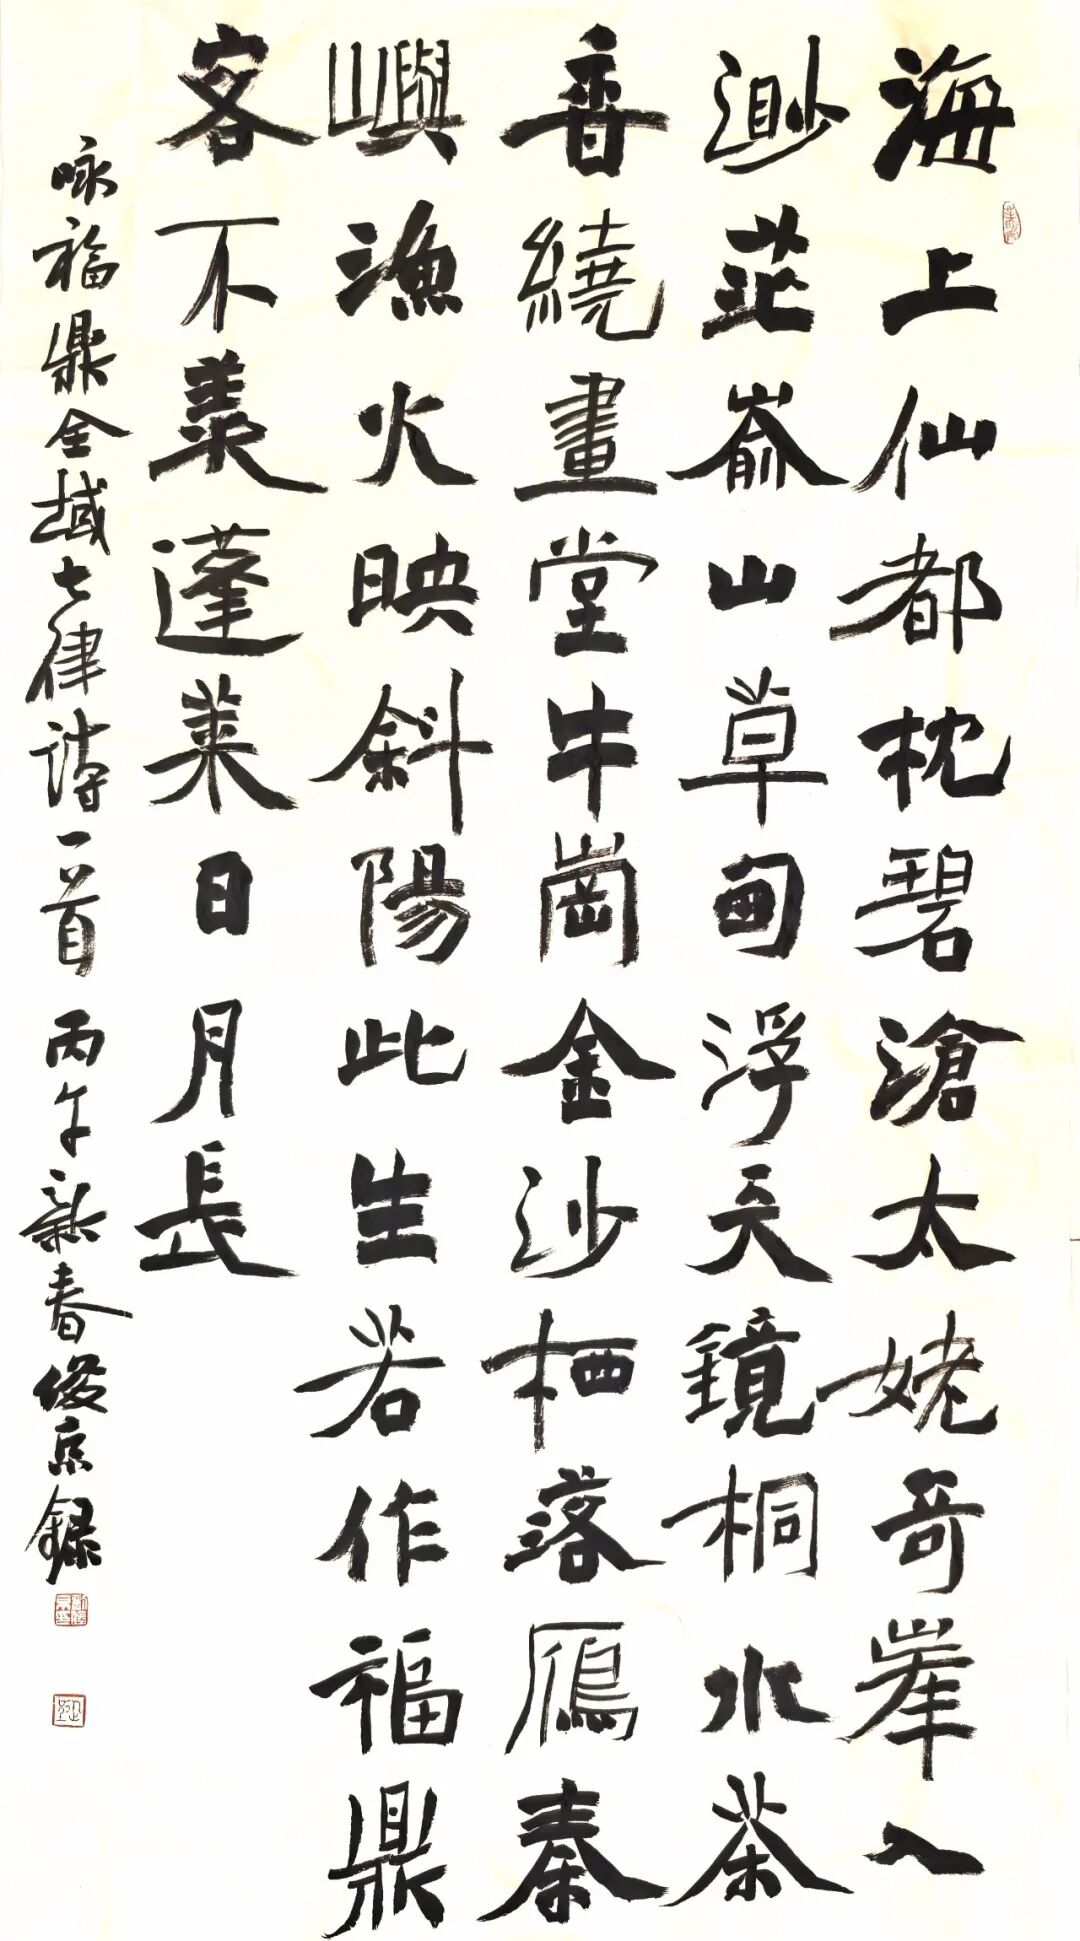 海上仙都枕碧滄太姥奇峯入
渺茫嵛山草甸浮天鏡桐水茶
香繞畫堂牛崗金沙栖落鴈秦
嶼漁火映斜陽此生若作福鼎
客不羨蓬萊日月長
咏福鼎全域七律詩一首 丙午新春俊京錄